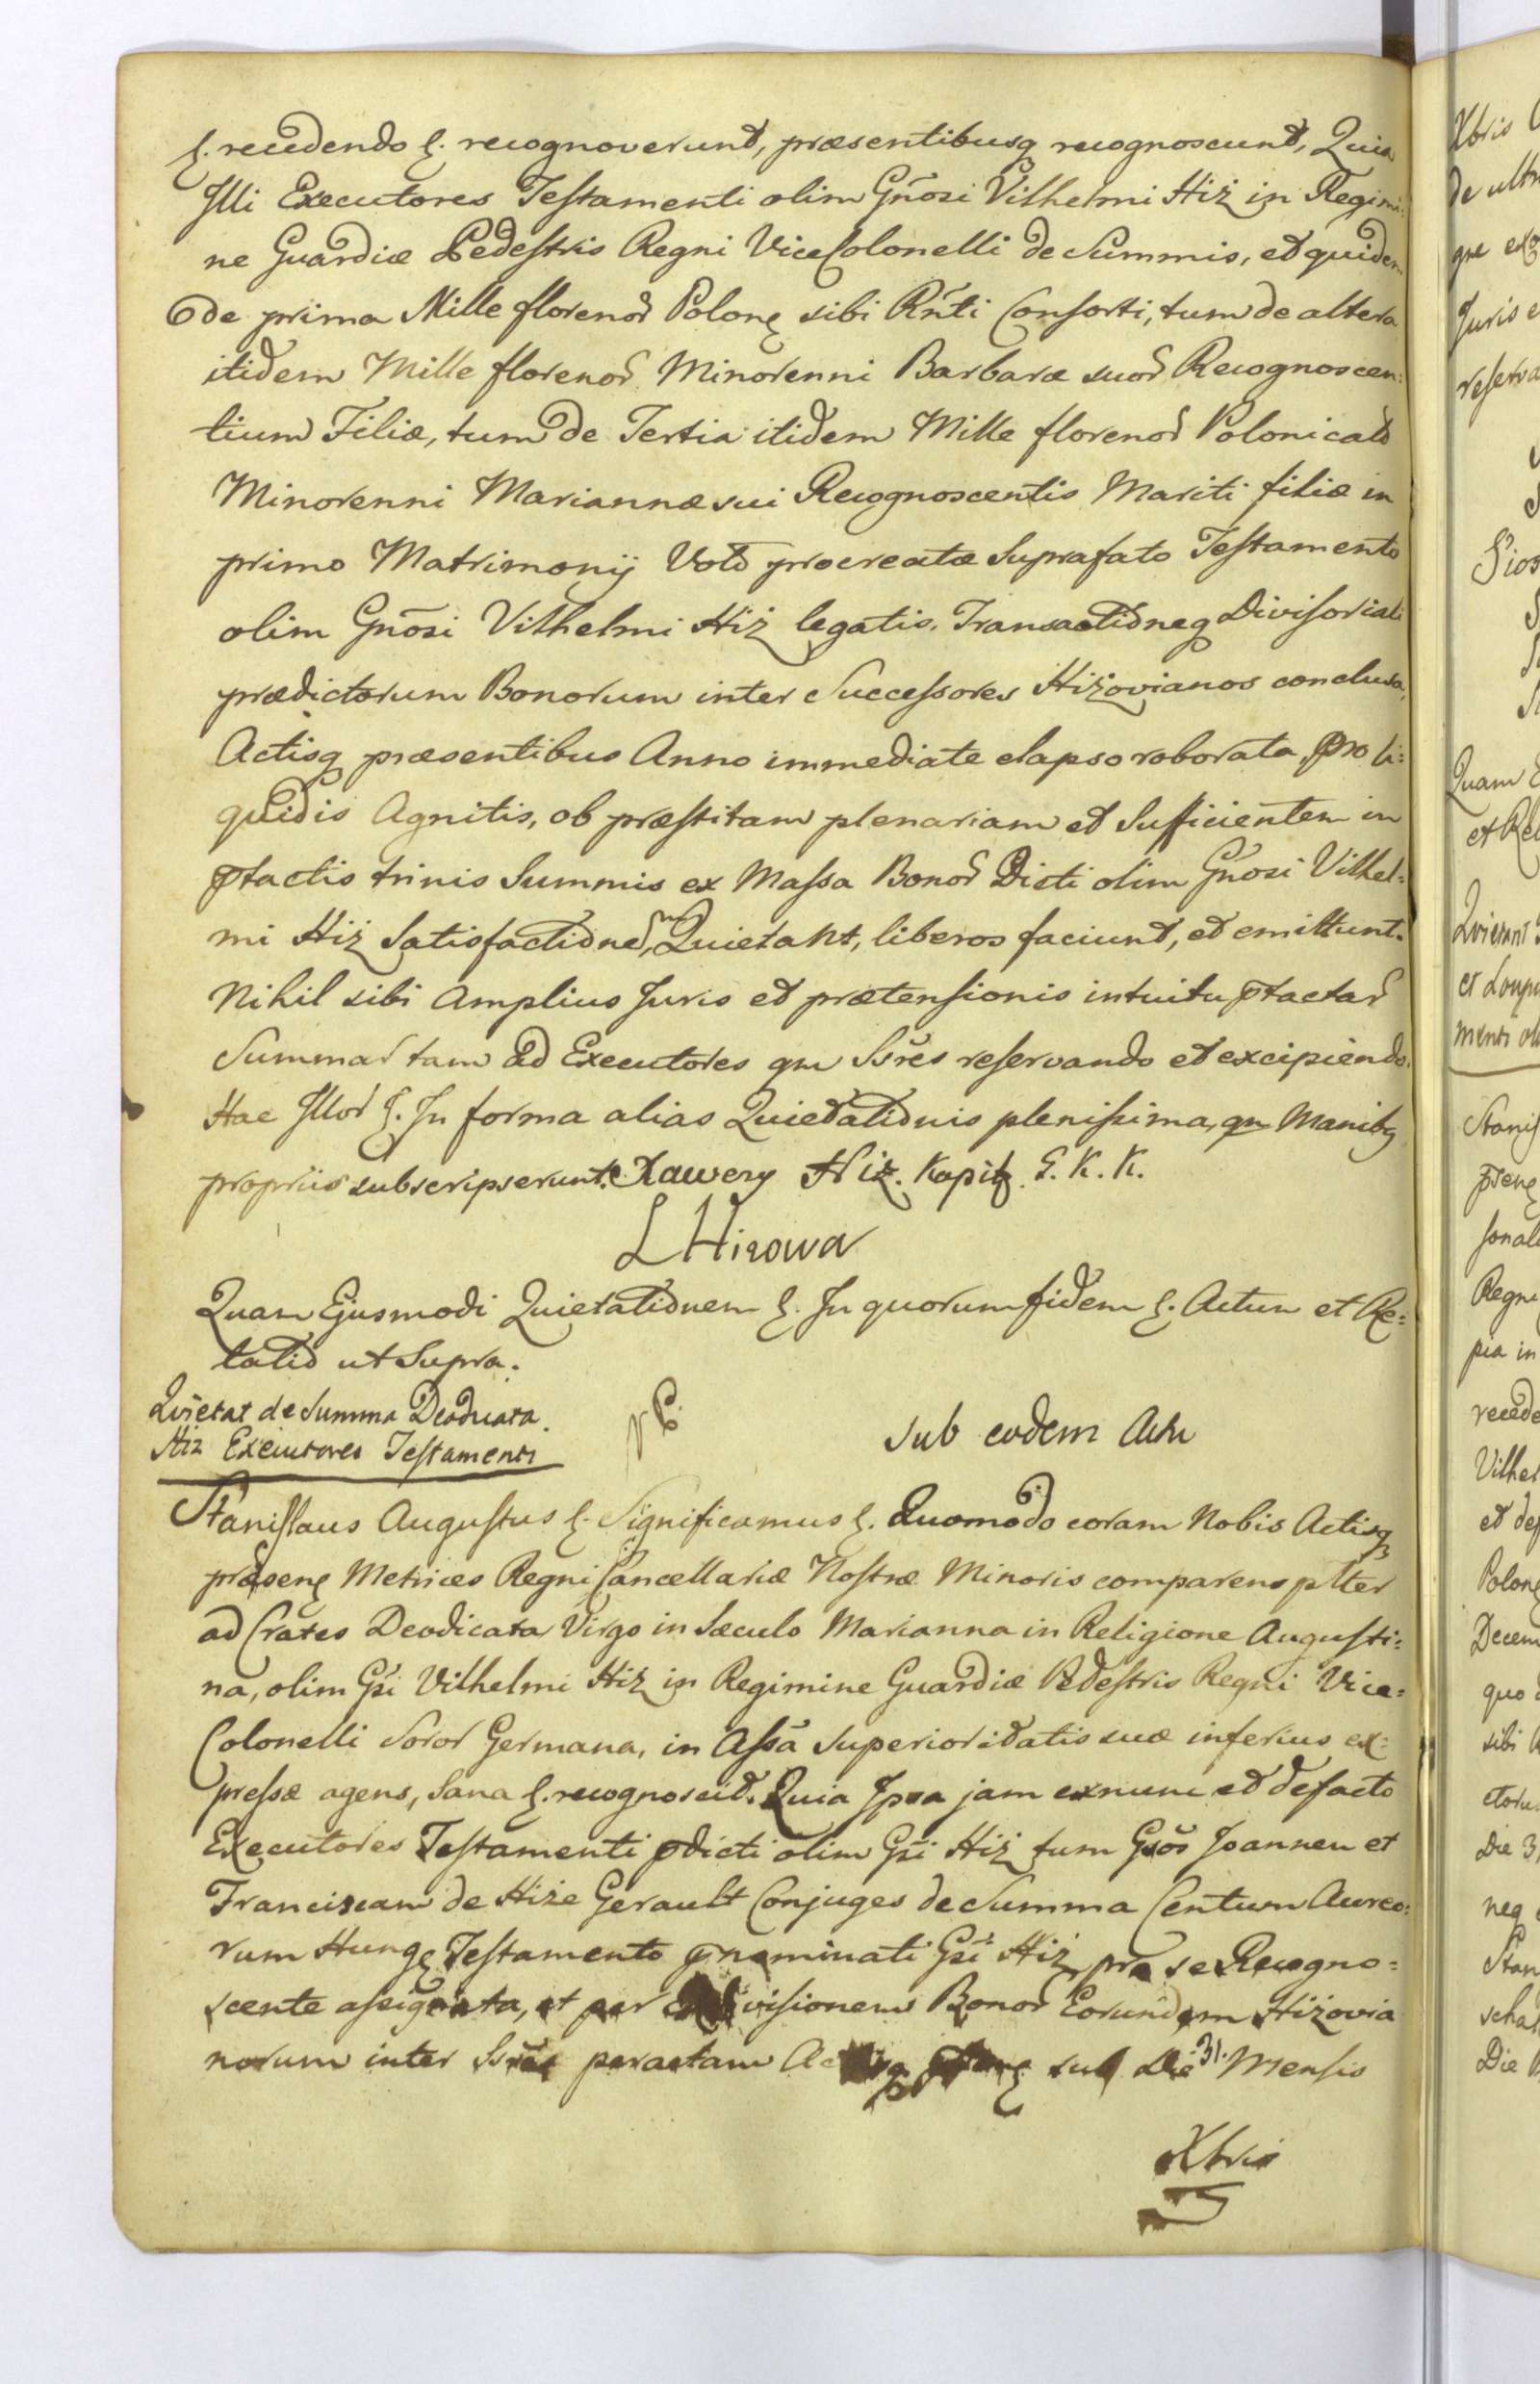 &. recedendo &. recognoverunt, præsentibusq recognoscunt, Quia
Illi Executores Testamenti olim Gnosi Vilhelmi Hiż in Regimi:
ne Guardiæ Pedestris Regni ViceColonelli de Summis, et quidem
de prima Mille florenor Polon sibi Rnti Consorti, tum de altera
itidem Mille florenor Minorenni Barbaræ suor Recognoscen:
tium Filiæ, tum de Tertia itidem Mille florenor Polonicalm
Minorenni Mariannæ sui Recognoscentis Mariti filiæ in
primo Matrimonij Voto procreatæ Suprafato Testamento
olim Gnosi Vilhelmi Hiż legatis. Transactioneq Divisoriali
prædictorum Bonorum inter Successores Hiżovianos conclusa,
Actisq præsentibus Anno immediate elapso roborata, pro li:
quidis Agnitis, ob præstitam plenariam et Sufficientem in
ptactis trinis Summis ex Massa Bonor Dicti olim Gnosi Vilhel:
mi Hiż Satisfactionem, Quietant, liberos faciunt, et emittunt.
Nihil sibi Amplius Juris et prætensionis intuitu ptactar
Summar tam ad Executores qm Ssres reservando et excipiendo.
Hac Illor &. In forma alias Quietationis plenissima, qm Manibq
propriis subscripserunt. Xawery Hiz. Kapit. G. K. K.
L Hizowa
Quam Ejusmodi Quietationem &. In quorum fidem &. Actum et Re:
latio ut Supra.
Quietat de Summa Deodicata
Hiz Executores Testamenti
sub eodem Actu
Stanislaus Augustus &. Significamus &. Quomodo coram Nobis Actisq
præsen Metrices Regni Cancellariæ Nostræ Minoris comparens pltter
ad Crates Deodicata Virgo in Sæculo Marianna in Religione Augusti:
na, olim Gsi Vilhelmi Hiż in Regimine Guardiæ Pedestris Regni Vice:
Colonelli Soror Germana, in Assa Superioritatis suæ inferius ex:
pressæ agens, Sana &. recognoscit. Quia Ipsa jam exnunc et defacto
Executores Testamenti pdicti olim Gsi Hiż tum Gsos Joannem et
Franciscam de Hiże Gerault Conjuges de Summa Centum Aureo:
rum Hung Testamento pnominati Gsi Hiż pro se Recogno:
scente assignata, et per Divisionem Bonor Eorundem Hiżovia
norum inter Ssres peractam Actisq sub Die 31. Mensis
Xbris